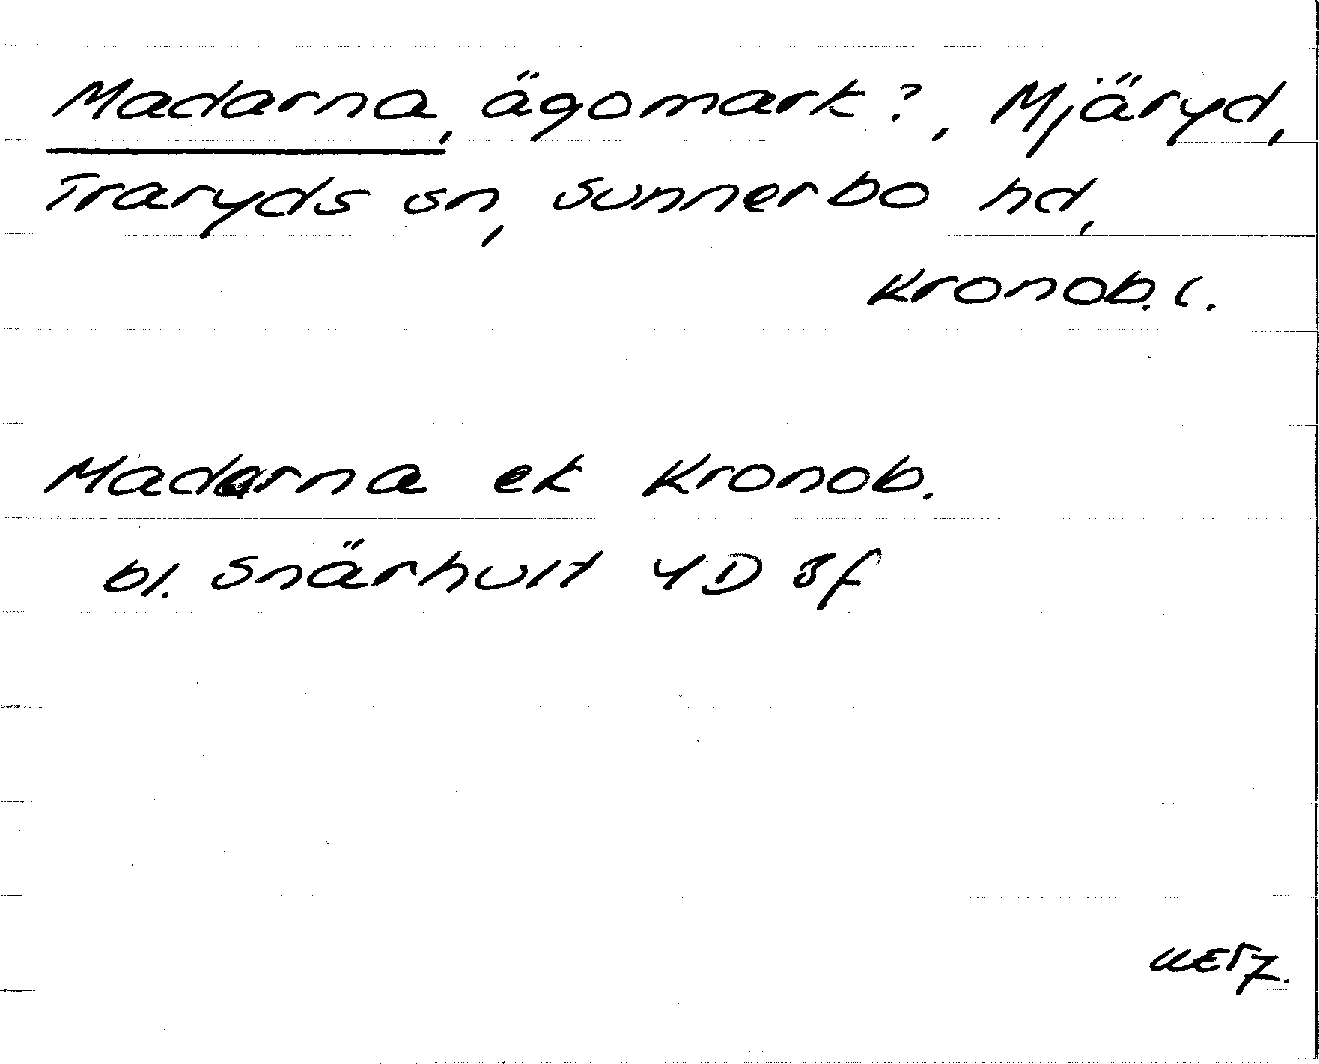 Madarna, ägomark?, Mjäryd,
Traryds sn, Sunnerbo hd,
Kronob. l.
Madarna ek Kronob.
bl. Snärhult 4D 8f